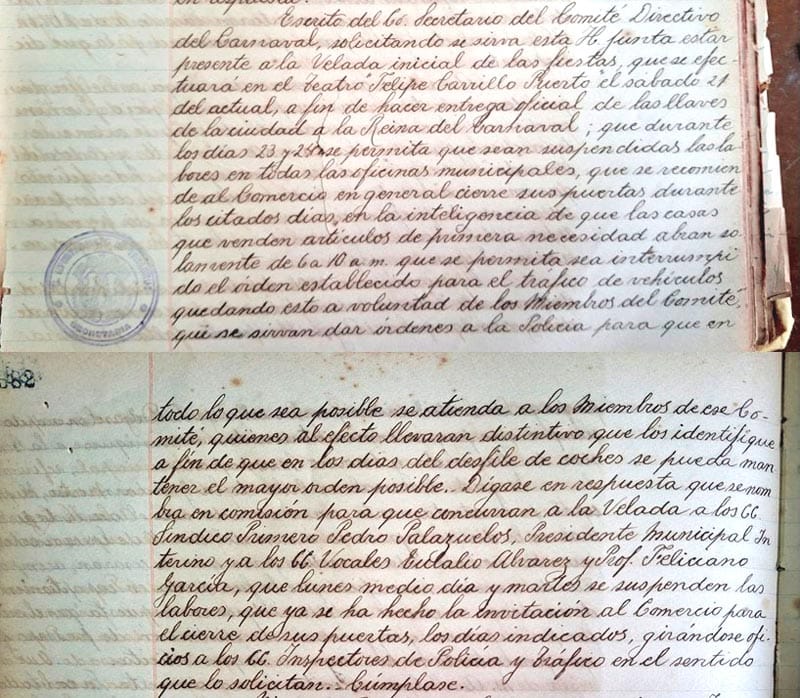 Escrito del Co. Secretario del Comité Directivo
del Carnaval, solicitando se sirva esta H. Junta estar
presente a la Velada inicial de las fiestas, que se efec-
tuará en el Teatro "Felipe Carrillo Puerto" el sábado 21
del actual, a fin de hacer entrega oficial de las llaves
de la ciudad a la Reina del Carnaval; que durante
los días 23 y 24 se permita que sean suspendidas las la-
bores en todas las oficinas municipales, que se recomien
de al Comercio en general cierre sus puertas durante
los citados días, en la inteligencia de que las casas
que venden artículos de primera necesidad abran so-
lamente de 6 a 10 a.m. que se permita sea interrumpi
do el orden establecido para el tráfico de vehículos
quedando esto a voluntad de los Miembros del Comité,
que se sirvan dar órdenes a la Policía para que en
SECRETARIA
382
todo lo que sea posible se atienda a los Miembros de ese Co-
mité, quienes al efecto llevaran distintivo que los identifique
a fin de que en los dias del desfile de coches se pueda man
tener el mayor orden posible.. Dígase en respuesta que se nom
bra en comisión para que concurran a la Velada a los CC.
Sindico Primero Pedro Palazuelos, Presidente Municipal In
terino y a los CC. Vocales Eutalio Alvarez y Prof. Feliciano
García, que lunes medio día y martes se suspenden las
labores, que ya se ha hecho la invitación al Comercio para
el cierre de sus puertas, los días indicados, girándose ofi-
cios a los CC. Inspectores de Policía y Tráfico en el sentido
que lo solicitan.- Cúmplase.